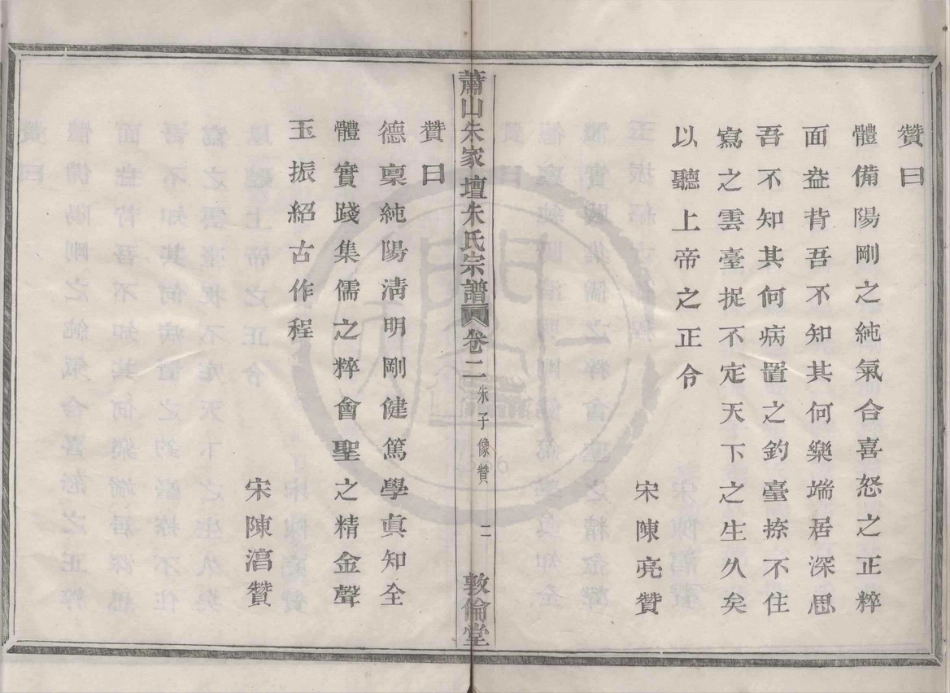 贊曰
體備陽剛之純氣合喜怒之正粹
面盎背吾不知其何樂端居深思
吾不知其何病置之釣臺捺不住
寫之雲臺捉不定天下之生久矣
以聽上帝之正令
宋陳亮贊
蕭山朱家壇朱氏宗譜 卷二 朱子像贊 二 敦倫堂
贊曰
德稟純陽清明剛健篤學真知全
體實踐集儒之粹會聖之精金聲
玉振紹古作程
宋陳淳贊